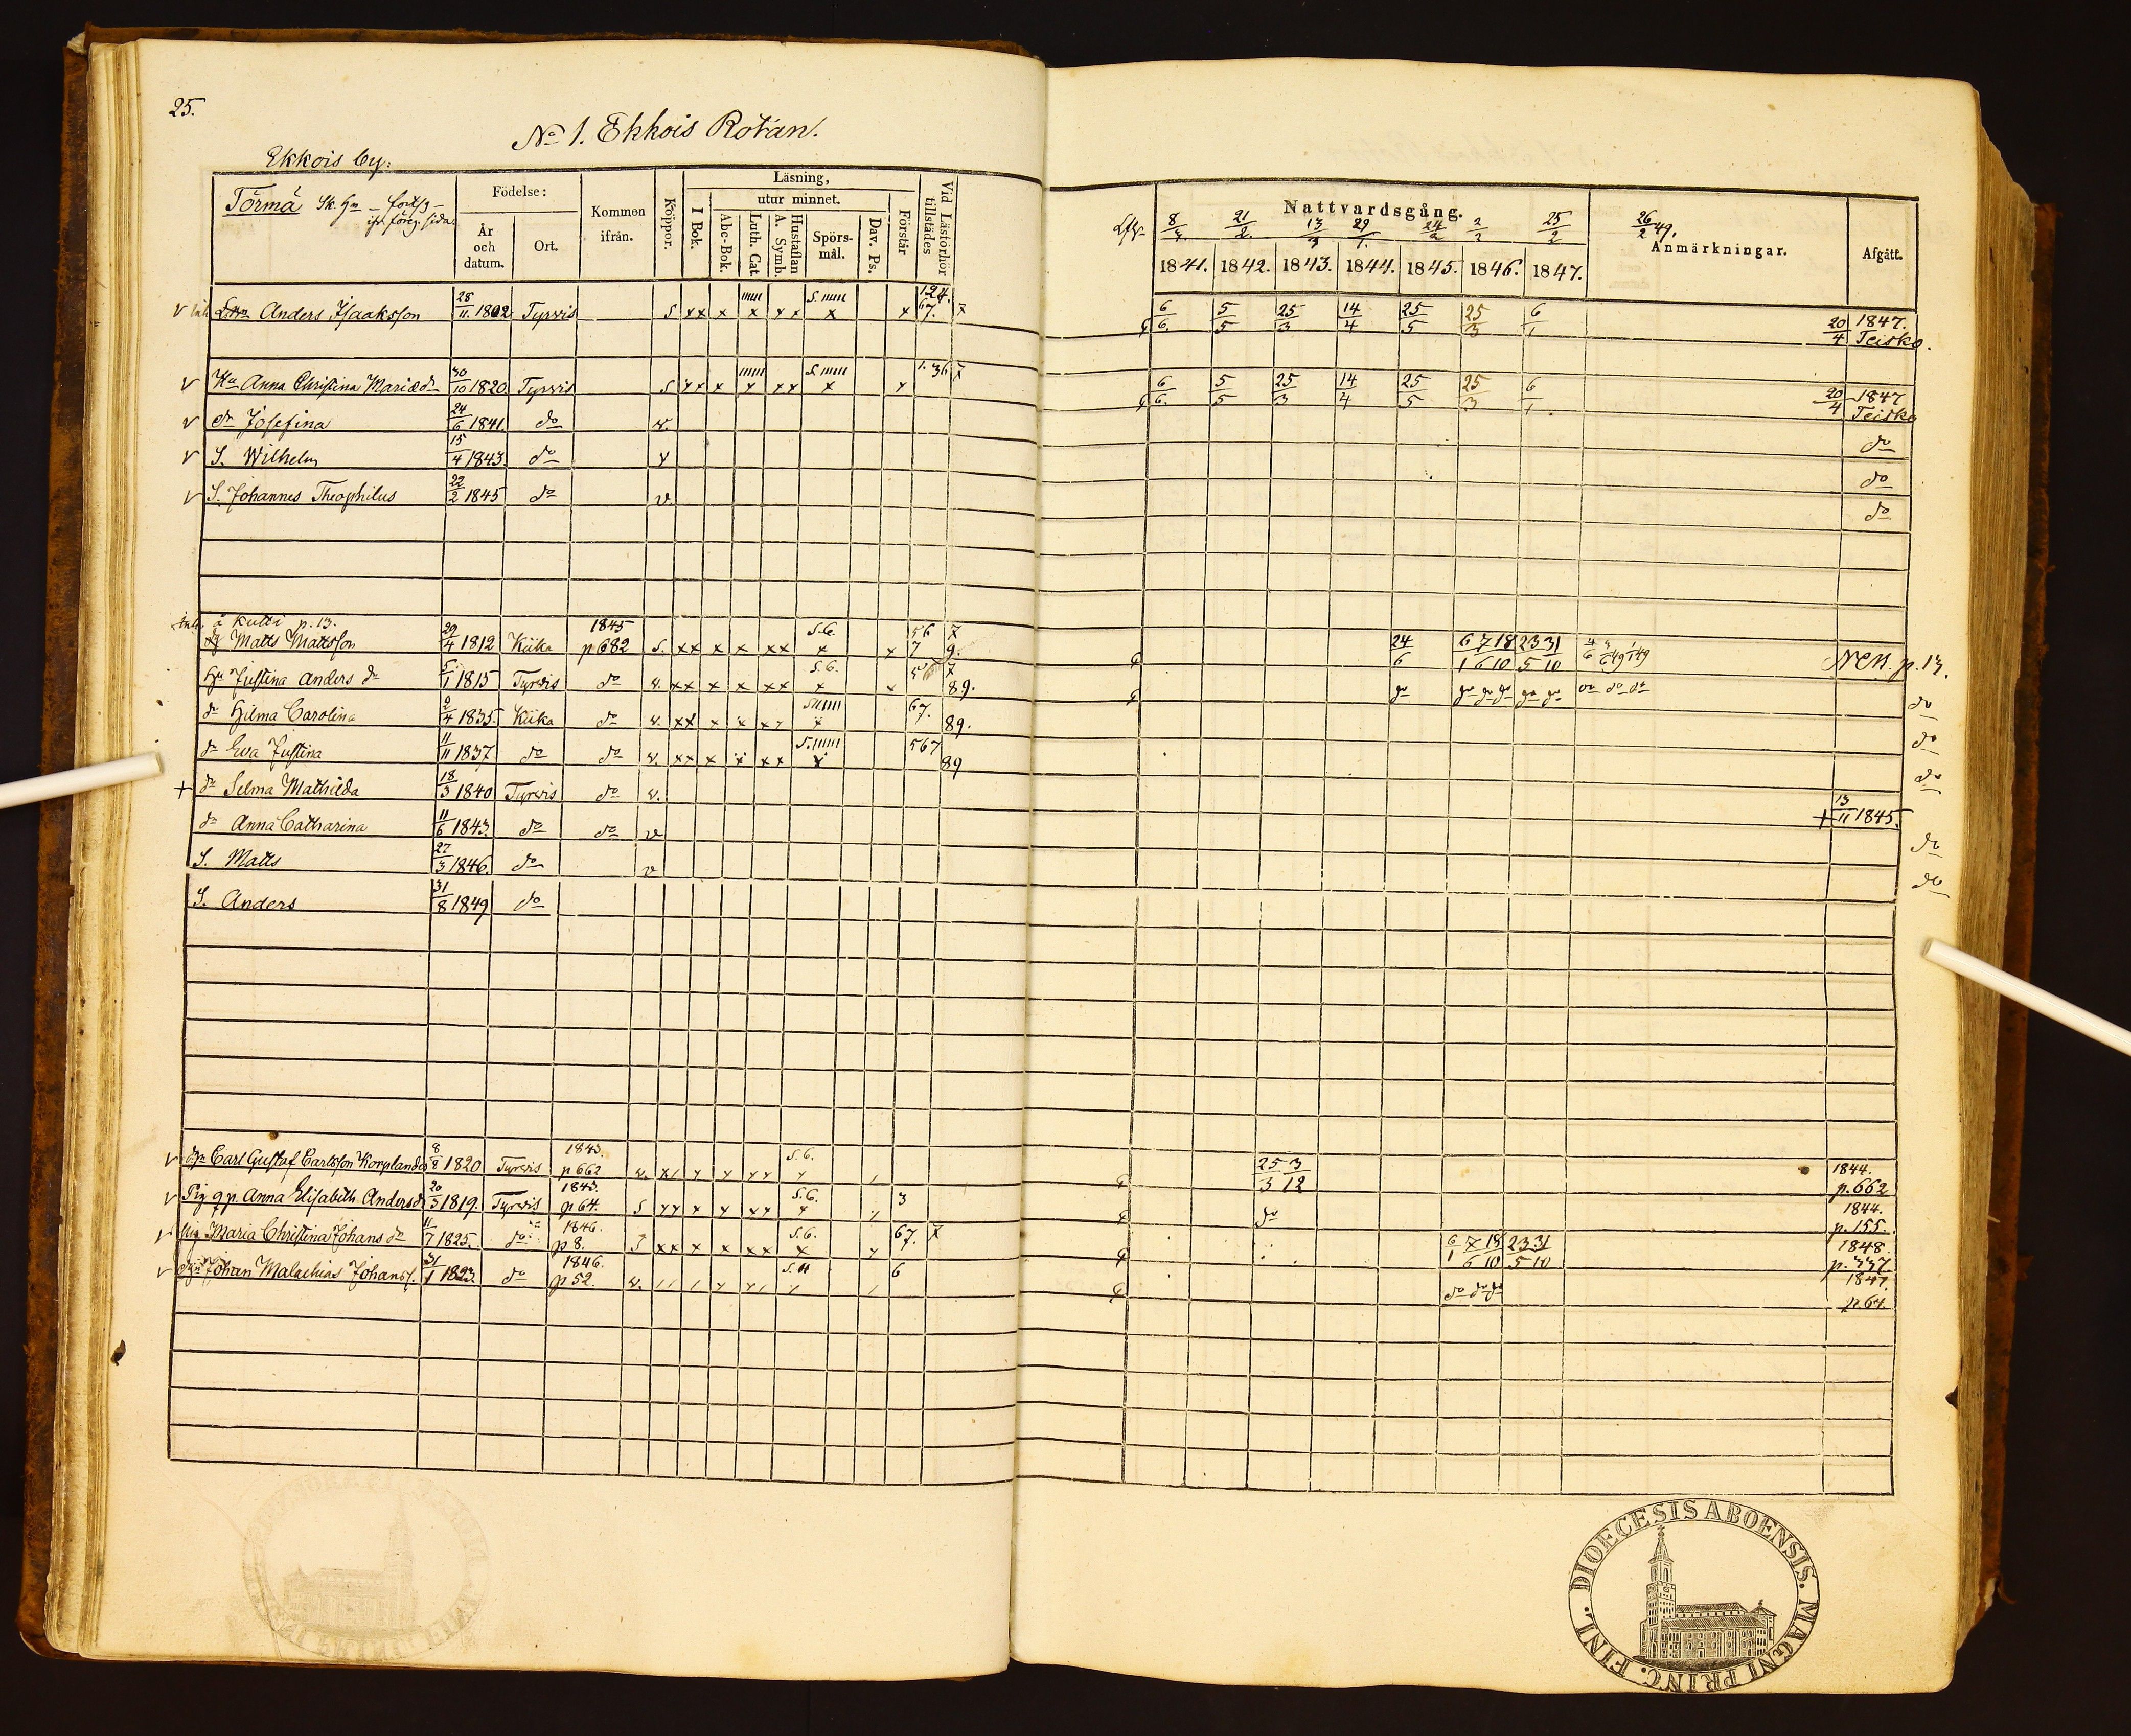 25.
No 1. Ekkois Rotan.
Ekkois by:
Törmä Sk. Hn - forts. -
ifr. föreg. sida
Födelse:
År och datum.
Ort.
Kommen ifrån.
Koppor.
Läsning,
I Bok.
utur minnet.
Abc-Bok.
Luth. Cat.
A. Symb.
Hustaflan
Spörsmål.
Dav. Ps.
Förstår
Vid Läsförhör tillstädes
Nattvardsgång.
8/4 21/2 13/3 29/1 24/2 2/2 25/2 26/2 49.
1841. 1842. 1843. 1844. 1845. 1846. 1847.
Anmärkningar.
Afgått.
Anders Isaaksson 28/11 1802 Tyrvis S xx x x xx x x 124. 67. 6/6 5/5 25/3 14/4 25/5 25/3 6/1 20/4 1847. Teisko.
Hu Anna Christina Mariædr 30/10 1820 Tyrvis S xx x x xx x x 1. 36 6/6 5/5 25/3 14/4 25/5 25/3 6/1 20/4 1847 Teisko
dr Josefina 24/6 1841. do v. do
S. Wilhelm 15/4 1843 do v do
S. Johannes Theophilus 22/2 1845 do v. do
å Kutti p. 13.
Matts Mattsson 29/4 1812 Kiika 1845 p 682 S. xx x x xx S.6. x x 56 7 9. 24/6 6/1 7/6 18/10 23/5 31/10 p. 13.
Hu Justina Anders dr 5/1 1815 Tyrvis do v. xx x x xx S.6. x x 89. do do do do do do do do do do
dr Hilma Carolina 2/4 1835. Kiika do v. xx x x xx x 67. 89. do
dr Eva Justina 11/11 1837 do do v. xx x x xx x 567 89 do
+ dr Selma Mathilda 18/3 1840 Tyrvis do v. + 13/11 1845.
dr Anna Catharina 11/6 1843. do do v do
S. Matts 27/3 1846. do v do
S. Anders 31/8 1849 do
Carl Gustaf Carlsson Korplander 8/8 1820 Tyrvis 1843. p 662 v. S.6. 25/3 3/12 1844. p. 662
Pig Anna Elisabeth Andersdr 20/3 1819. Tyrvis 1843. p 64. S S.6. 3 do 1844. p. 155.
Pig Maria Christina Johans dr 11/7 1825. do 1846. p 8. S xx x x xx S.6. x 67. 6/1 7/6 18/10 23/5 31/10 1848. p. 337
Johan Malachias Johanss. 31/1 1823. do 1846. p 52. v. 6 do do do 1847. p 64.
DIOECESIS ABOENSIS. MAGNI PRINC. FINL.